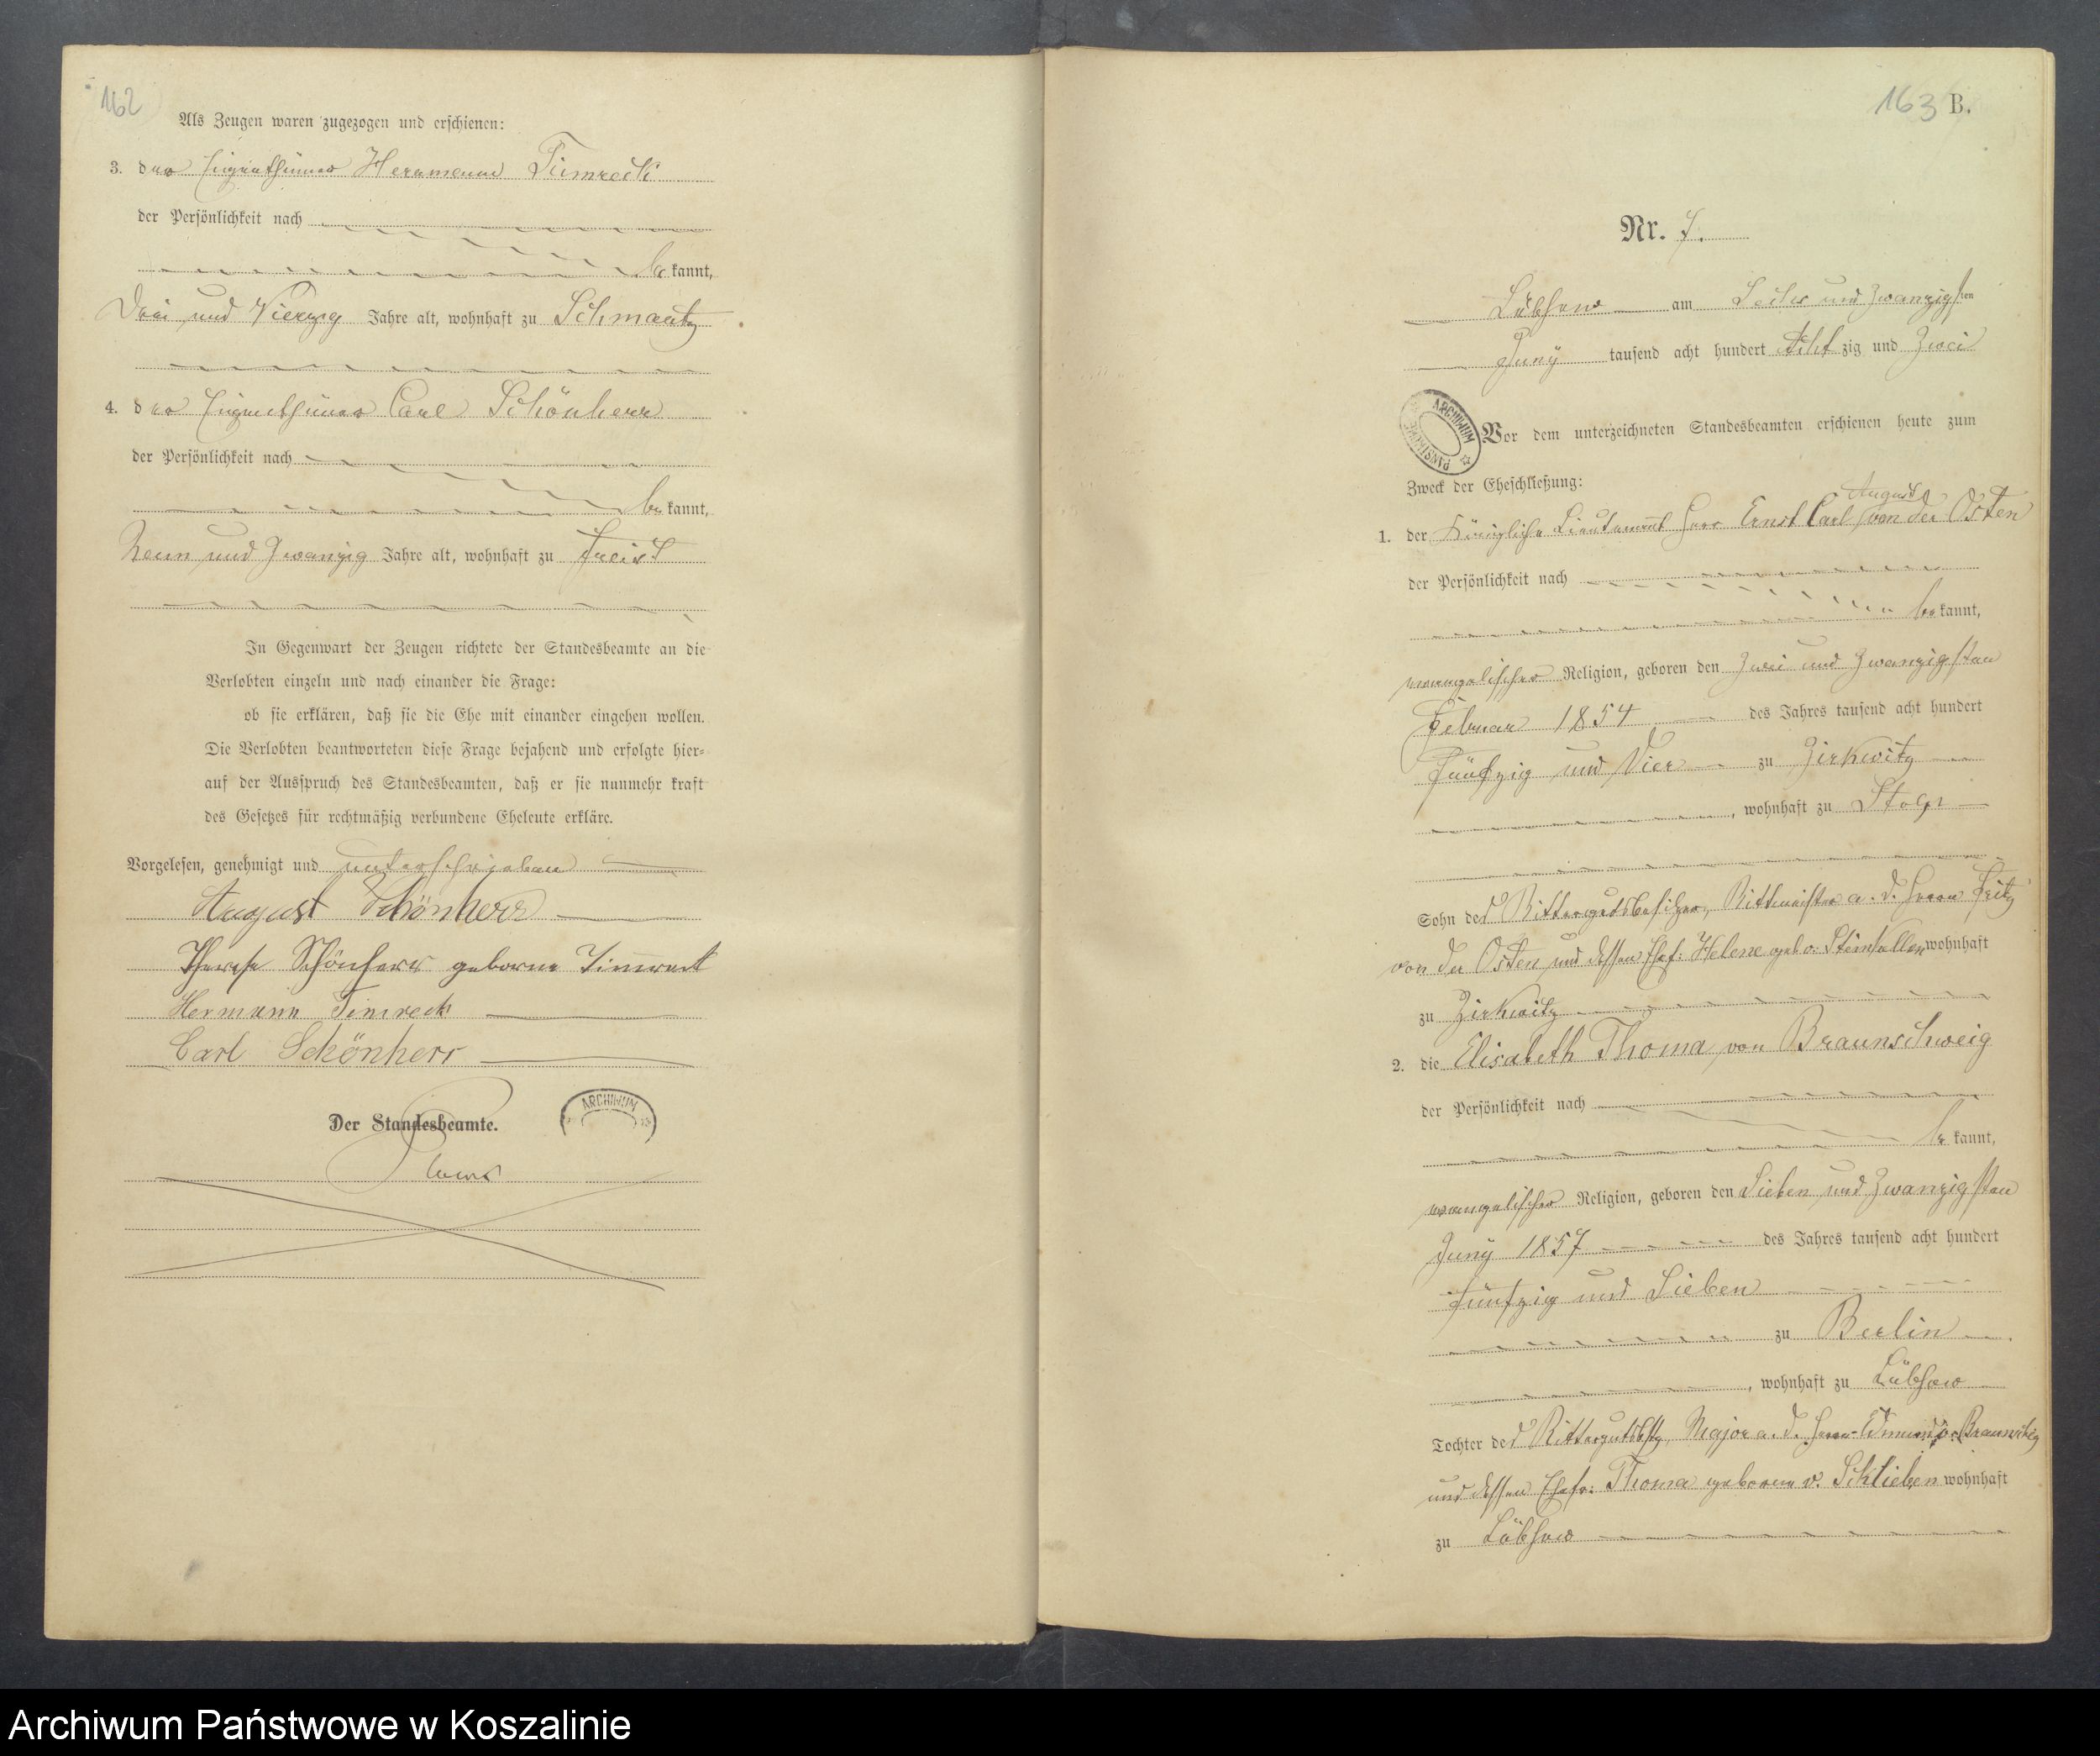 162
Als Zeugen waren zugezogen und erschienen:
3. der Eigenthümer Herrmann Timreck
der Persönlichkeit nach
bekannt,
Drei und Vierzig Jahre alt, wohnhaft zu Schmaatz
4. der Eigenthümer Carl Schönherr
der Persönlichkeit nach
bekannt,
Neun und Zwanzig Jahre alt, wohnhaft zu Freist
In Gegenwart der Zeugen richtete der Standesbeamte an die
Verlobten einzeln und nach einander die Frage:
ob sie erklären, daß sie die Ehe mit einander eingehen wollen.
Die Verlobten beantworteten diese Frage bejahend und erfolgte hier-
auf der Ausspruch des Standesbeamten, daß er sie nunmehr kraft
des Gesetzes für rechtmäßig verbundene Eheleute erkläre.
Vorgelesen, genehmigt und unterschrieben
August Schönherr
Therese Schönherr geborne Timreck
Hermann Timreck
Carl Schönherr
Der Standesbeamte.
ARCHIWUM
163 B.
Nr. 7.
Lübzow am Sechs und Zwanzigsten
Juny tausend acht hundert Achtzig und Zwei
ARCHIWUM PAŃSTWOWE
Vor dem unterzeichneten Standesbeamten erschienen heute zum
Zweck der Eheschließung:
August
1. der Königliche Lieutenant Herr Ernst Carl von der Osten
der Persönlichkeit nach
bekannt,
evangelischer Religion, geboren den Zwei und Zwanzigsten
Februar 1854 des Jahres tausend acht hundert
Fünfzig und Vier zu Zirkwitz
, wohnhaft zu Stolp
Sohn des Rittergutsbesitzer, Rittmeister a. D. Herrn Fritz
von der Osten und dessen Ehef: Helene geb: Steinkeller wohnhaft
zu Zirkwitz
2. die Elisabeth Thoma von Braunschweig
der Persönlichkeit nach
bekannt,
evangelischer Religion, geboren den Sieben und Zwanzigsten
Juny 1857 des Jahres tausend acht hundert
fünfzig und Sieben
zu Berlin
, wohnhaft zu Lübzow
Tochter des Rittergutsbsitz, Major a. D. Herrn Edmund v. Braunschweig
und dessen Ehefr: Thoma geborene v. Schlieben wohnhaft
zu Lübzow
Archiwum Państwowe w Koszalinie